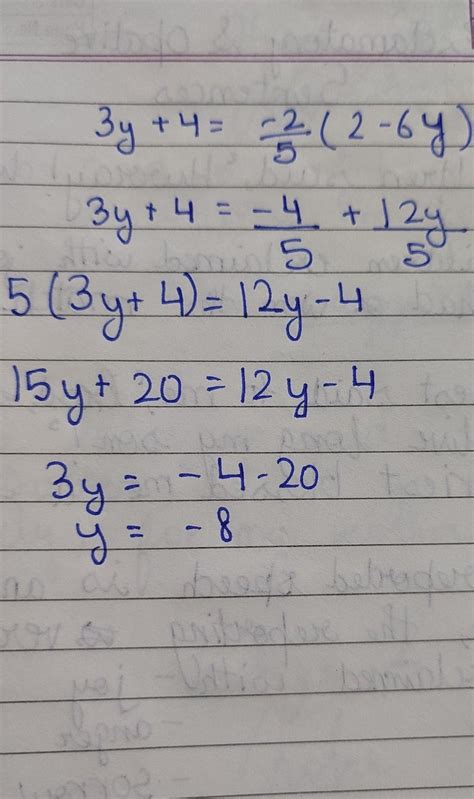 3y + 4 = -2/5 (2 - 6y)
3y + 4 = -4/5 + 12y/5
5(3y + 4) = 12y - 4
15y + 20 = 12y - 4
3y = -4 - 20
y = -8